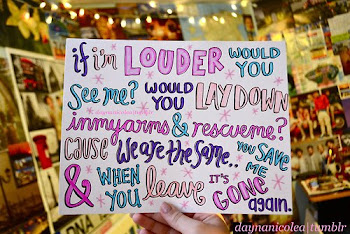 if i'm LOUDER WOULD YOU
See me? WOULD YOU LAY DOWN
in my arms & rescue me?
cause We are the same.. YOU SAVE ME
& WHEN YOU leave IT'S GONE again.
daynanicolea|tumblr